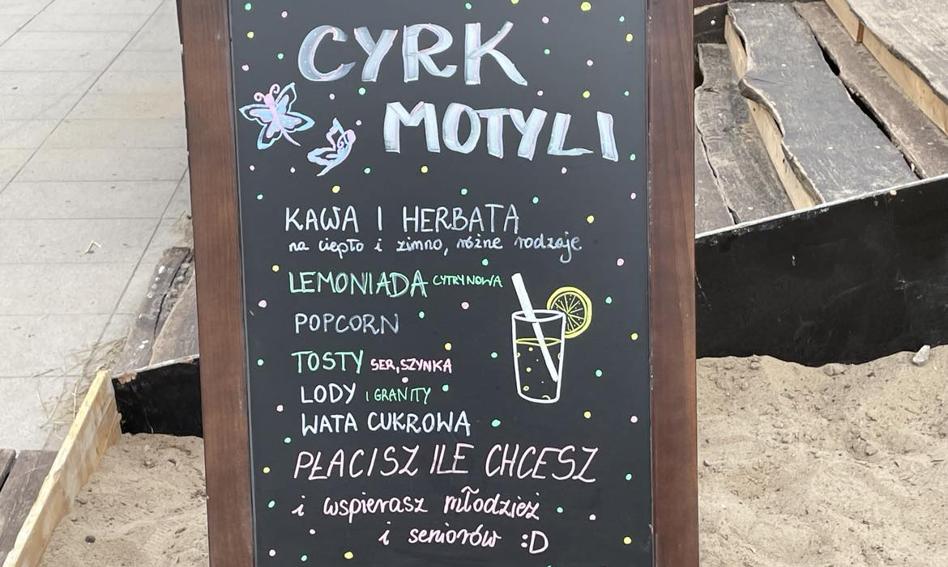 CYRK
MOTYLI
KAWA I HERBATA
na ciepło i zimno, różne rodzaje
LEMONIADA CYTRYNOWA
POPCORN
TOSTY SER, SZYNKA
LODY I GRANITY
WATA CUKROWA
PŁACISZ ILE CHCESZ
i wspierasz młodzież
i seniorów :D